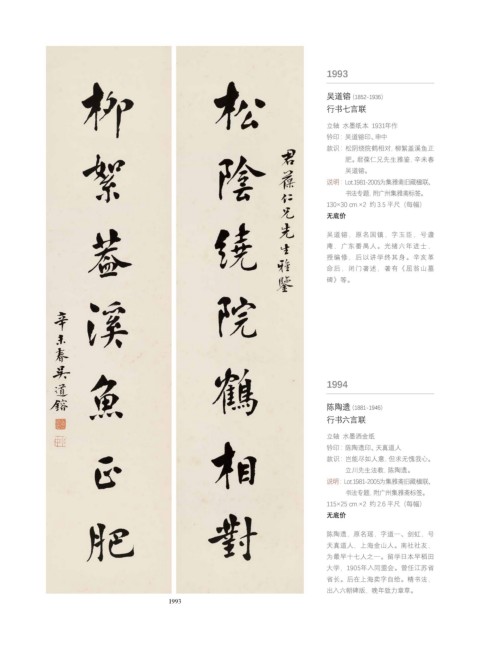 松陰繞院鶴相對
君葆仁兄先生雅鑒
柳絮蓋溪魚正肥
辛未春吳道鎔
1993
1993
吴道镕（1852-1936）
行书七言联
立轴 水墨纸本 1931年作
钤印：吴道镕印、
款识：松阴绕院鹤相对，柳絮盖溪鱼正
肥。君葆仁兄先生雅鉴，辛未春
吴道镕。
说明：Lot.1981-2005为集雅斋旧藏楹联、
书法专题，附广州集雅斋标签。
130×30 cm ×2 约 3.5 平尺（每幅）
无底价
吴道镕，原名国镇，字玉臣，号澹
庵，广东番禺人。光绪六年进士，
授编修，后以讲学终其身。辛亥革
命后，闭门著述，著有《屈翁山墓
碑》等。
1994
陈陶遗（1881-1946）
行书六言联
立轴 水墨洒金纸
钤印：陈陶遗印、天真道人
款识：岂能尽如人意，但求无愧我心。
立川先生法教，陈陶遗。
说明：Lot.1981-2005为集雅斋旧藏楹联、
书法专题，附广州集雅斋标签。
115×25 cm ×2 约 2.6 平尺（每幅）
无底价
陈陶遗，原名瑶，字道一、剑虹，号
天真道人，上海金山人。南社社友，
为最早十七人之一。留学日本早稻田
大学，1905年入同盟会。曾任江苏省
省长。后在上海卖字自给。精书法，
出入六朝碑版，晚年致力章草。